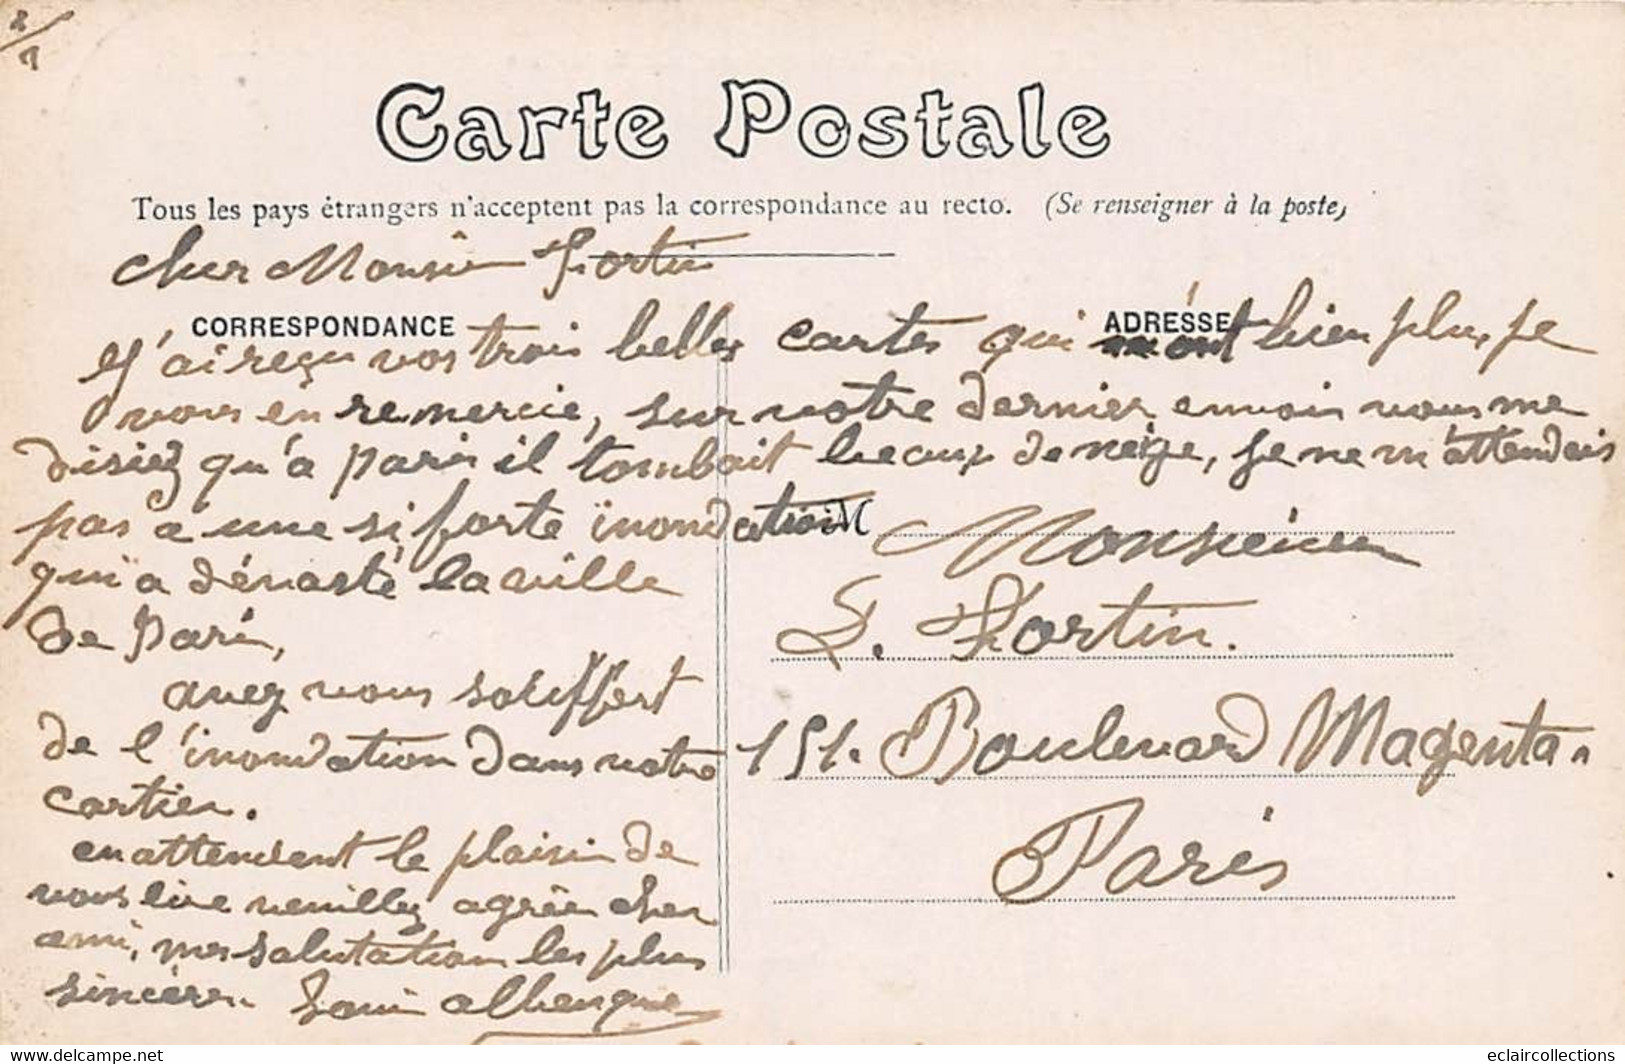 2/1
Carte Postale
Tous les pays étrangers n'acceptent pas la correspondance au recto. (Se renseigner à la poste)
Cher Monsieur Fortin
CORRESPONDANCE
ADRESSE
J'ai reçu vos trois belles cartes qui m'ont bien plus, je
vous en remercie, sur votre dernier envoir vous me
disiez qu'a Paris il tombait beaux de neige, je ne m'attendais
pas a une si forte inondation
qui a dévasté la ville
de Paris,
avez vous souffert
de l'inondation dans votre
cartier.
en attendent le plaisir de
vous lire veuillez agréer cher
ami, mes salutation les plus
sincères. Louis Albengue
Monsieur
L. Fortin.
151. Boulevard Magenta.
Paris
www.delcampe.net
eclaircollections